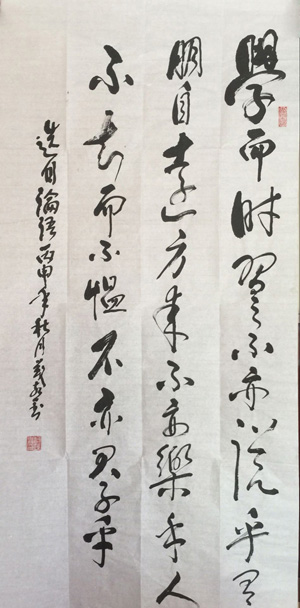 學而時習之不亦悦乎有
朋自遠方来不亦樂乎人
不知而不愠不亦君子乎
選自論語丙申年秋月